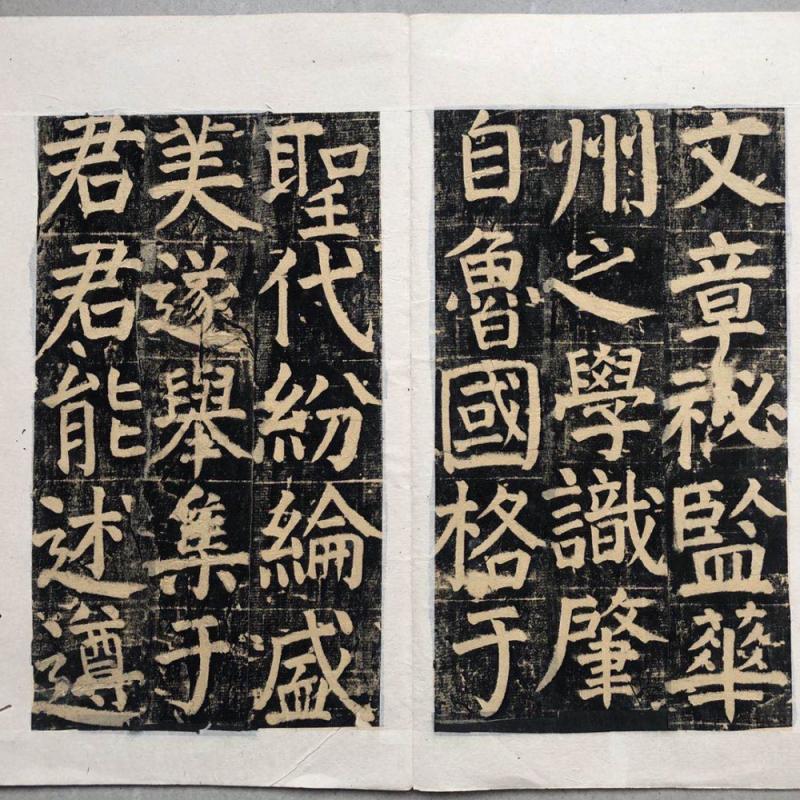 文章祕監華
州之學識肇
自魯國格于
聖代紛綸盛
美遂舉集于
君君能述遵